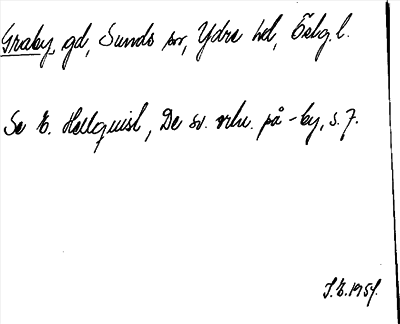 Graby, gd, Sunds sn, Ydre hd, Östg. l.
Se E. Hellquist, De sv. ortn. på -by, s. 7.
J.E. 1954.